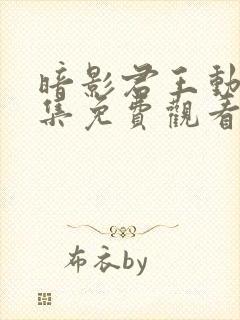 暗影君王動
集免費觀看
布衣by